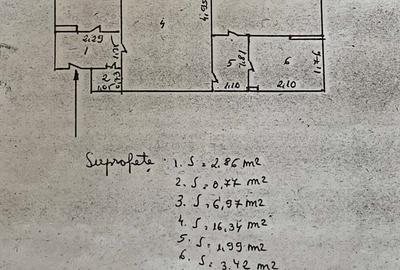 4
4,95
2.29
1
1.25
5
1,81
6
1,71
2
0.73
1.05
1,10
2,10
Suprafețe: 1. S = 2.86 m2
2. S = 0,77 m2
3. S = 6,97 m2
4. S = 16,34 m2
5. S = 1,99 m2
6. S = 3,42 m2